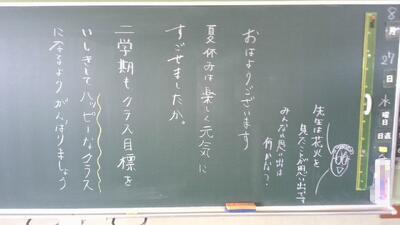 8月27日水曜日日直
先生は花火を
見たことが思い出です
みんなの思い出は
何かな?
おはようございます
夏休みは楽しく元気に
すごせましたか。
二学期もクラス目標を
いしきしてハッピーなクラス
になるよう がんばりましょう